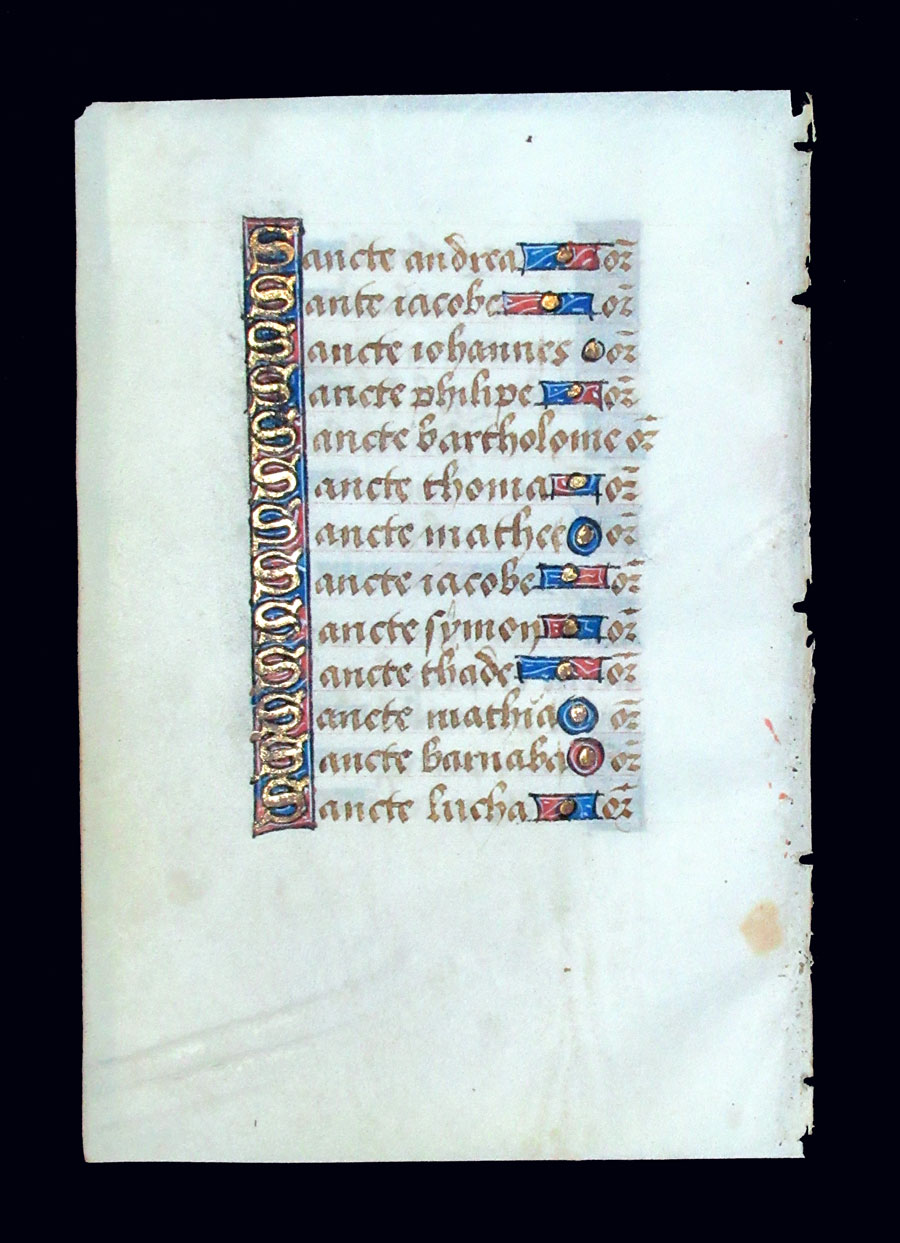 Sancte andrea or̄
Sante iacobe or̄
Sancte iohannes or̄
Sancte philipe or̄
Sancte bartholome or̄
Sancte thoma or̄
Sancte mathee or̄
Sancte iacobe or̄
Sancte symon or̄
Sancte thade or̄
Sancte mathia or̄
Sancte barnaba or̄
Sancte lucha or̄